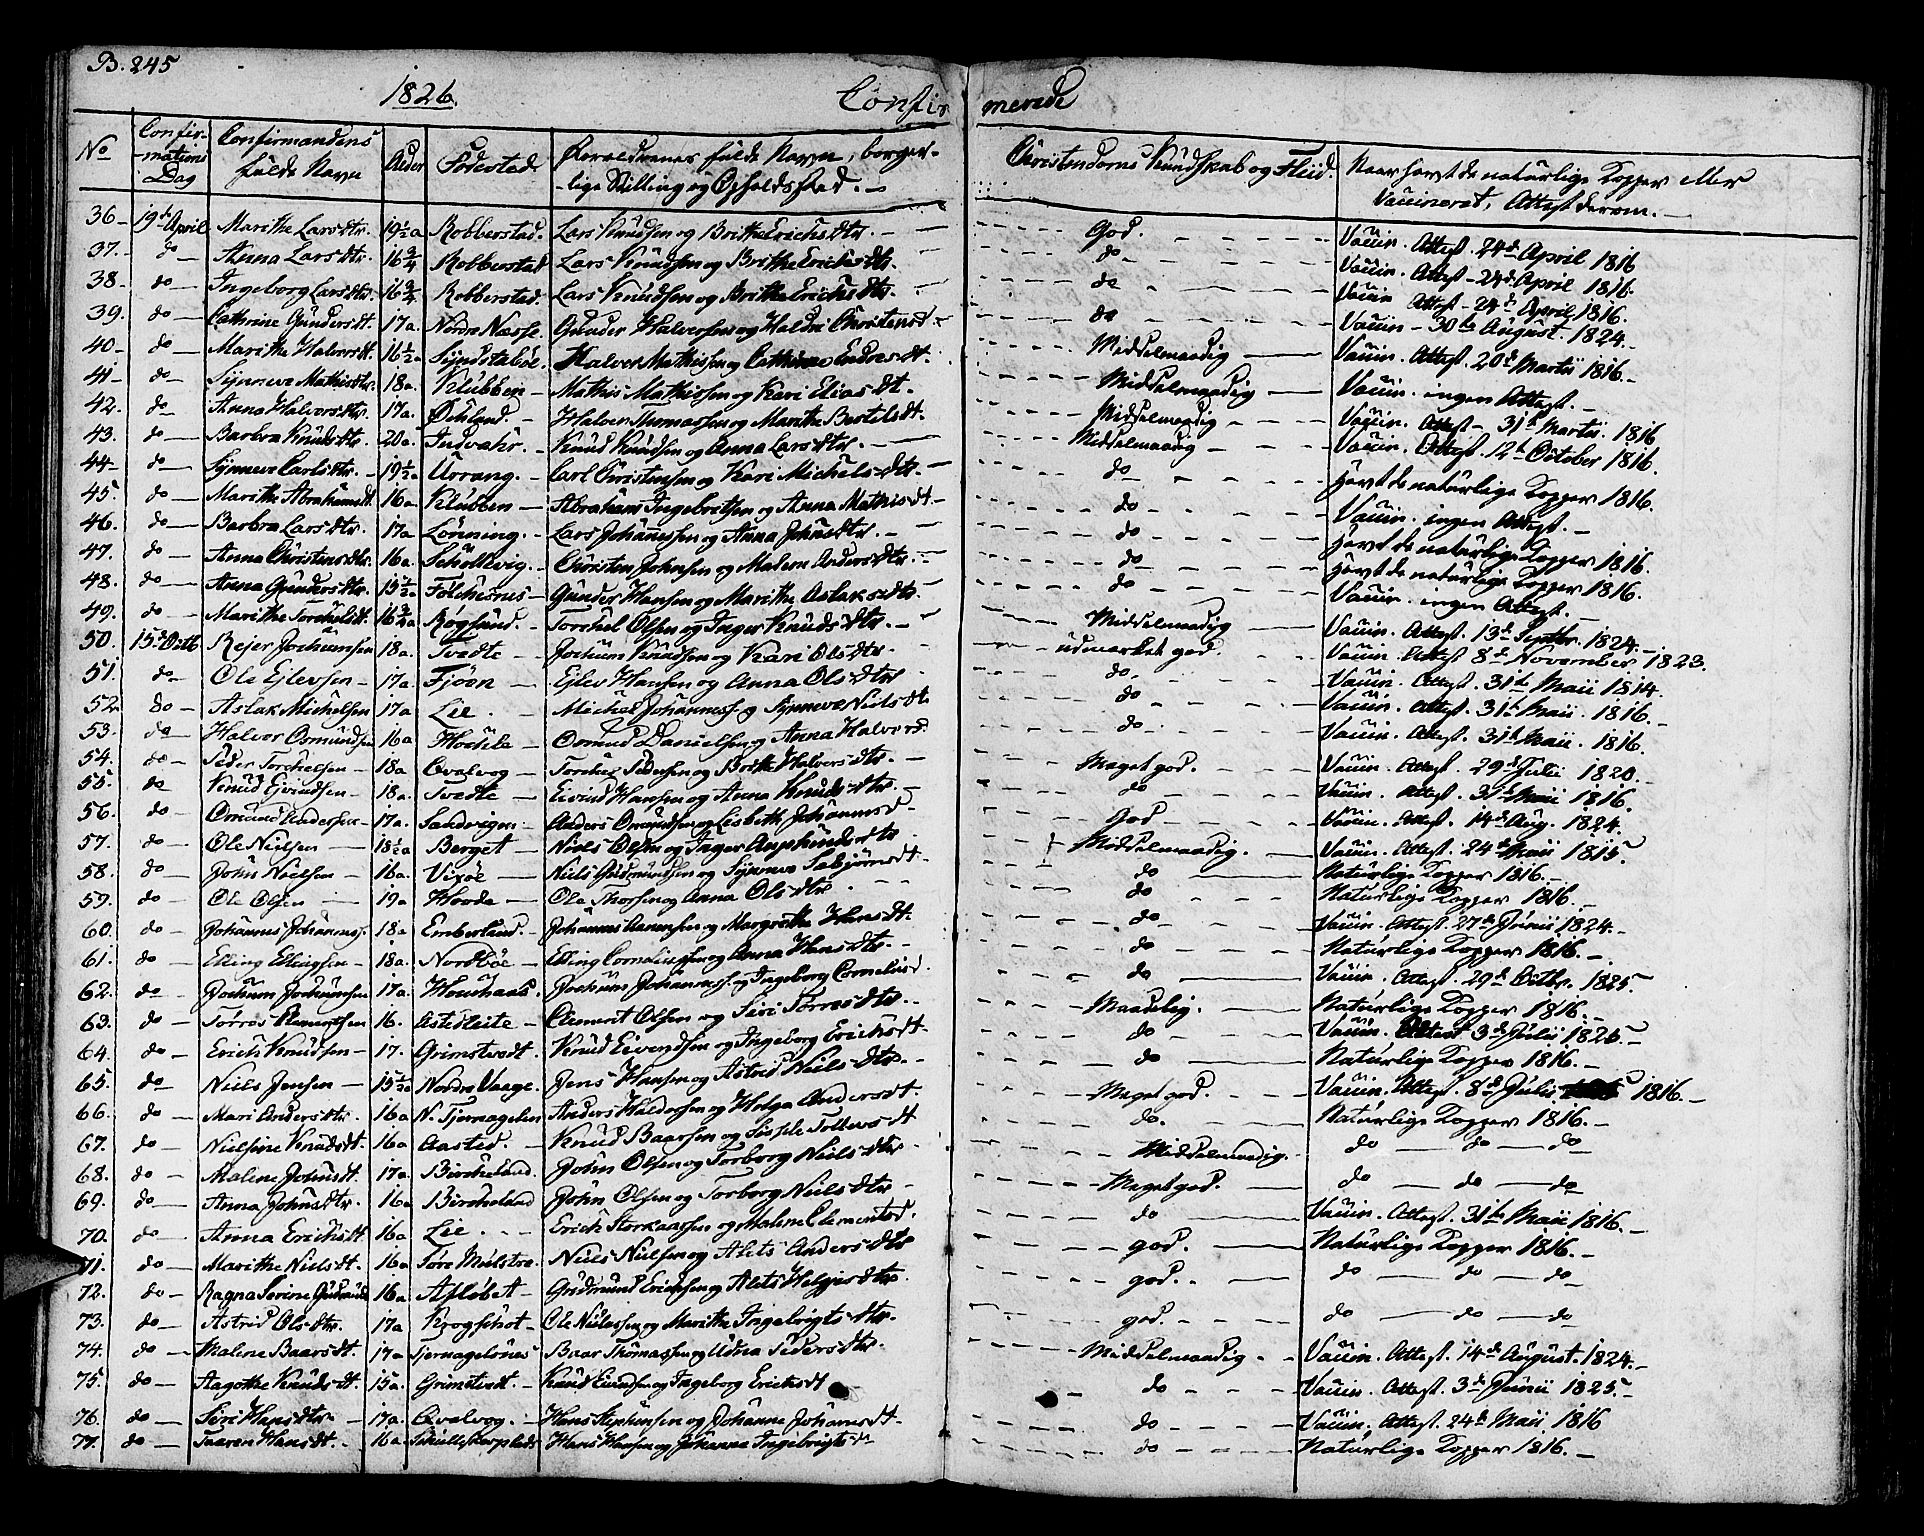 B. 245
1826.
Confirmerede
No Confirmations Dag Confirmandens fulde Navn Alder Fødested Forældrenes fulde Navn, borgerlige Stilling og Opholdssted. Christendoms Kundskab og Fliid. Naar havt de naturlige Kopper eller Vaccineret, Attest derom.
36 19de April Marithe Larsdtr. 19½a Robberstad. Lars Knudsen og Brithe Erichsdtr. God. Vaccin. Attest. 24de April 1816
37. do Anna Larsdtr. 16¾ Robberstad Lars Knudsen og Brithe Erichsdtr. do Vaccin. Attest 24de April 1816.
38 do Ingeborg Larsdtr. 16¾ Robberstad. Lars Knudsen og Brithe Erichsdtr. do Vaccin Attest 24de April 1816.
39. do Cathrine Gundersdt. 17a. Nordre Næsse. Gunder Halversen og Haldri Christensd. do Vaccin 30te August. 1824.
40 do Marithe Halversdt. 16½a Halver Mathissen og Cathrine Endresdt. Middelmaadig Vaccin. Attest. 20de Martii 1816.
41 do Synneve Mathisdtr. 18a. Klubben Mathis Mathissen og Kari Eliasdt. Middelmaadig Vaccin. ingen Attest.
42. do Anna Halversdtr. 17a. Økland. Halver Thomassen og Marithe Bastelsdt. Middelmaadig Vaccin. Attest 31te Martii. 1816
43. do Barbra Knudsdtr. 20a. Indvahr. Knud Knudsen og Anna Larsdtr. Middelmaadig Vaccin. Attest. 12te October 1816.
44 do Synneve Carlsdtr. 19½a Urrang. Carl Christensen og Kari Michelsdtr. do havt de naturlige Kopper 1816.
45. do Marithe Abrahamsdt 16a Klubben Abraham Ingebritsen og Anna Mathisdt do Vaccin. ingen Attest.
46. do Barbra Larsdtr. 17a Lønning. Lars Johannessen og Anna Johnsdtr. do havt de naturlige Kopper 1816.
47. do Anna Christensdtr. 16a Schollevig. Christen Johnsen og Madern Andersdtr. do havt de naturlige Kopper 1816.
48. do Anna Gundersdtr. 15½a Gunder Hansen og Marithe Aslaksdtr. do Vaccin. ingen Attest.
49. do Marithe Torchelsdt. 16¾a Røgsund. Torchel Olsen og Inger Knudsdtr. Middelmaadig Vaccin. Attest. 13de Septbr. 1824.
50. 15de Octb. Rejer Jochumsen 18a. Tvedte Jochum Knudsen og Kari Olsdtr. udmærket god. Vaccin. Attest 8de November 1823.
51. do Ole Ejlevsen 17a Fjøen Ejlev Hansen og Anna Olsdtr do. Vaccin. Attest. 31te Maii 1814.
52. do Aslak Michelsen 17a Lie. Michel Johanness. og Synneve Nielsdt. do Vaccin. Attest. 31te Maii. 1816.
53. do Halver Osmundsen 16a Osmund Danielsen og Anna Halversd. do Vaccin. Attest. 31te Maii. 1816.
54. do Peder Torchelsen 18a Qvalvog Torchel Pedersen og Brithe Halversdtr. Meget god. Vaccin. Attest. 29de Julii 1820.
55. do Knud Ejvindsen 18a. Tvedte Eivind Hansen og Anna Knudsdtr. do Vaccin. Attest. 31te Maii 1816.
56. do Osmund Andersen 17a. Sandvigen Anders Osmundsen og Lisbeth Johannesd God Vaccin. Attest. 14de Aug. 1824.
57. do Ole Nielsen 18½a Berget Niels Olsen og Inger Middelmaadig. Vaccin. Attest. 24de Maii 1815.
58. do John Nielsen 16a. Vixøe Niels Gudmundsen og Synneve Salejørnsdt. do Naturlige Kopper 1816.
59. do Ole Olsen 19a Hovda Ole Thorsen og Anna Olsdtr. do Naturlige Kopper 1816.
60. do Johannes Johanness. 18a Emberland. Johannes Hannsen og Margrethe Hansdt. do Vaccin. Attest. 27de Junii 1824.
61. do Elling Ellingsen 18a. Nordbøe Elling Corneliussen og Anna Hansdtr. do Naturlige Kopper 1816.
62. do Jochum Jochumsen 17a. Houkaas. Jochum Johanness. og Ingeborg Corneliusd. do Vaccin. Attest. 29de Octbr. 1825.
63. do Tørres Clemertsen 16. Aasedleite Clement Olsen og Siri Tørresdtr. Maadelig. Naturlige Kopper 1816.
64. do Erich Knudsen 17. Grimstvedt. Knud Eivendsen og Ingeborg Erichsdt. do Vaccin. Attest 3de Julii 1825
65. do Niels Jensen 15½a Nordre Vaage. Jens Hansen og Astrid Nielsdtr. do Naturlige Kopper 1816.
66. do Mari Andersdtr. 16a N. Tjernagelen Anders Haldorsen og Helga Andersdt. Meget god. Vaccin. Attest. 8de Julii 1816.
67. do Nielsine Knudsdt. 16a Aasted. Knud Baarsen og Sissele Tollevsdt do. Naturlige Kopper 1816.
68. do Malene Johnsdt. 17a Bircheland. John Olsen og Torborg Nielsdtr Middelmaadig. do do do
69. do Anna Johnsdtr. 16a Bircheland John Olsen og Torborg Nielsdtr Meget god. do do do
70. do Anna Erichsdt 16a Lie. Erich Storkaassen og Malene Clementsd. do Vaccin. Attest. 31te Maii 1816.
71. do Marithe Nielsdt. 16a Niels Nielsen og Alets Andersdtr god. Naturlige Kopper 1816.
72. do Ragna Serine Gudmund 16a Afløbet Gudmund Erichsen og Alets Helgesdtr. god. do do do
73. do Astrid Olsdtr. 17a Krogschot Ole Nielssen og Marithe Ingebrigtsdtr. god. do do do
74. do Malene Baarsdt. 17a Tjernagelsnes Baar Thomassen og Udna Pedersdtr. Middelmaadig Vaccin. Attest. 14de August. 1824.
75. do Aagothe Knudsdt. 15a. Grimstvedt. Knud Eivindsen og Ingeborg Erichsdt do Vaccin. Attest. 3de Junii 1825.
76. do Siri Hansdtr. 17a. Qvalvog. Hans Stephensen og Johanne Johannesdt. do Vaccin. Attest. 24de Maii 1816
77. do Taaren Hansdt. 16a Hans Hansen og Johanna Ingebrigtsdt do Naturlige Kopper 1816.